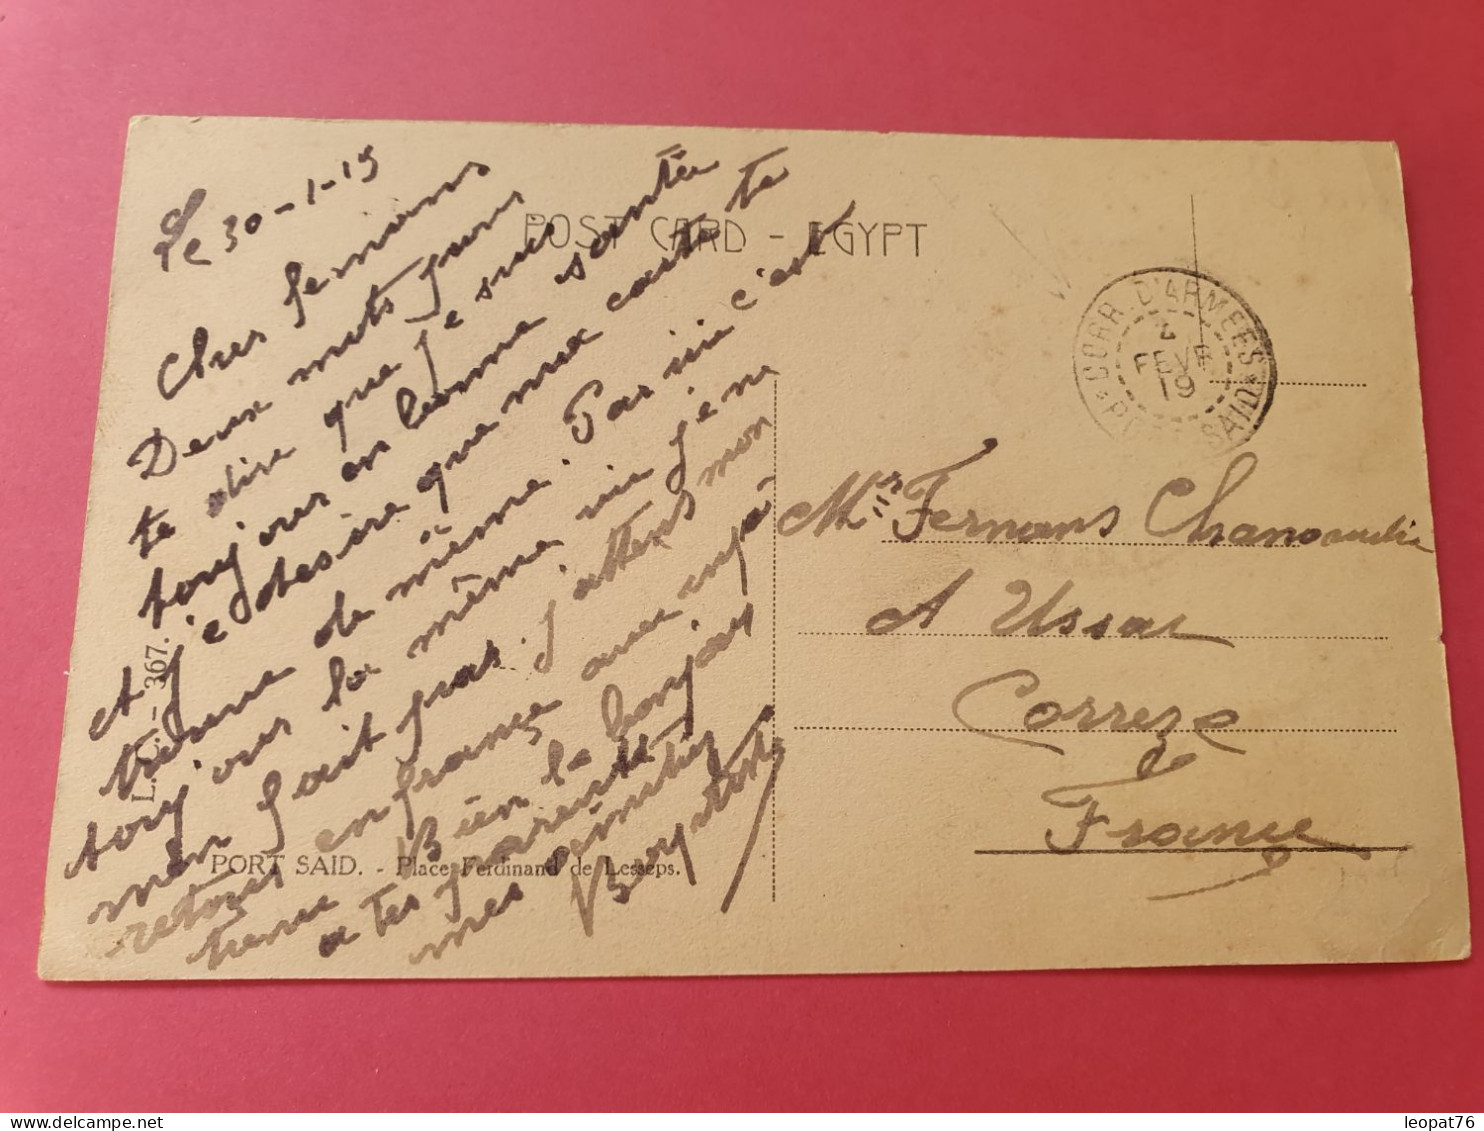 Le 30-1-19
Cher fernans
Deux mots pour
te dire que je suis
toujours en bonne santée
et je désire que ma carte te
trouve de même. Par ici c'est
toujours la même vie j'en
m'en fait pas. j'attens mon
retour en françe avec impa
tience Bien le bonjour
a tes parents
mes amitiés
POST CARD - EGYPT
CORR. D'ARMEES
2
FEVR
19
PORT SAID
Mr Fernans
A Ussac
Correze
France
L. - 367.
PORT SAID. - Place Ferdinand de Lesseps.
leopat76